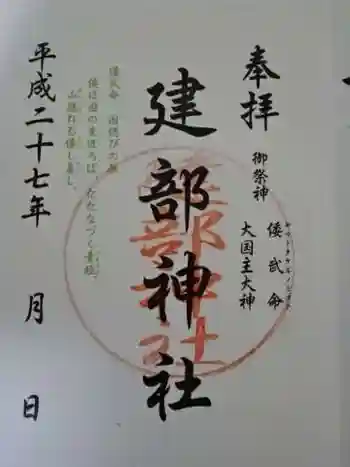 奉拝
御祭神
ヤマトタケルノミコト
倭武命
大国主大神
建部神社
建部神社
倭武命 国偲びの歌
倭は国の真秀ろば、たたなづく青垣、
山隠れる倭し美し。
平成二十七年 月 日